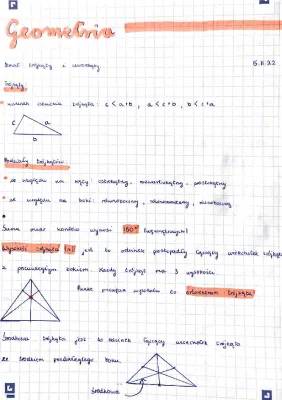 Geometria
5.11.22
Trójkąty
warunek istnienia trójkąta: c < a+b, a < c+b, b < c+a
c a
b
Podział trójkątów
ze względu na kąty: ostrokątny, rozwartokątny, prostokątny
ze względu na boki: równoboczny, równoramienny, różnoboczny
Suma miar kątów wynosi 180°
Wysokość trójkąta (h) jest to odcinek prostopadły łączący wierzchołek trójkąta
z przeciwległym bokiem. Każdy trójkąt ma 3 wysokości.
Punkt przecięcia wysokości to ortocentrum trójkąta
Środkowa trójkąta jest to odcinek łączący wierzchołek trójkąta
ze środkiem przeciwległego boku.
środkowa